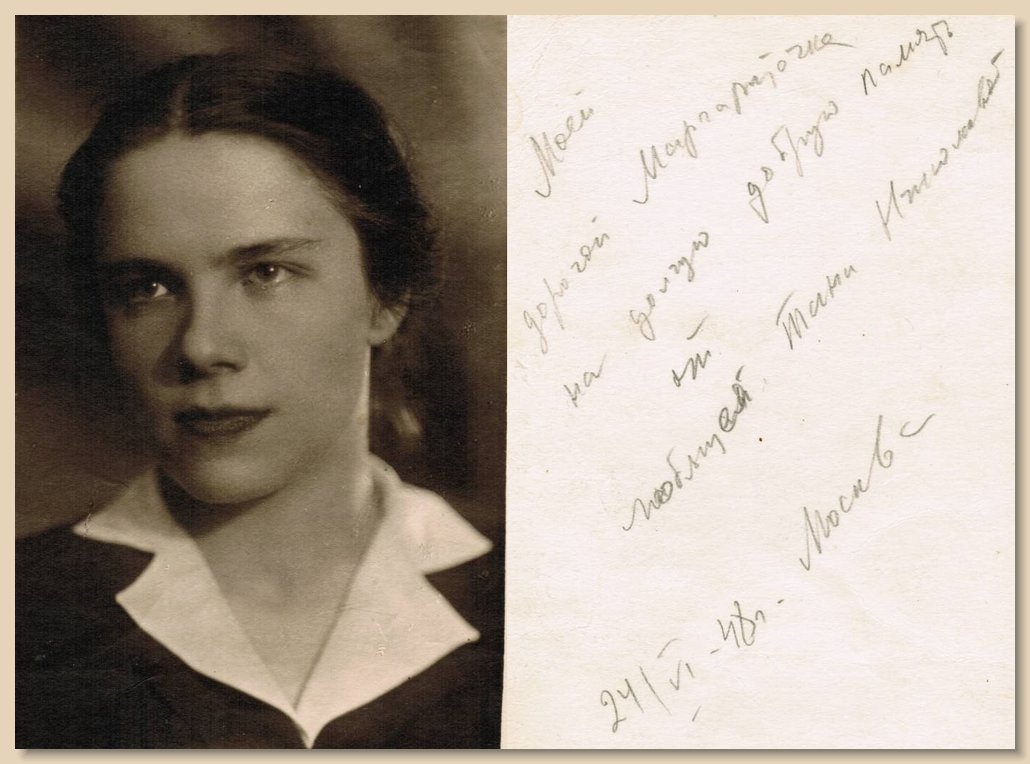 Моей
дорогой Маргариточка
на долгую добрую память
от
любящей Тани
Москва
24/VI-48г.